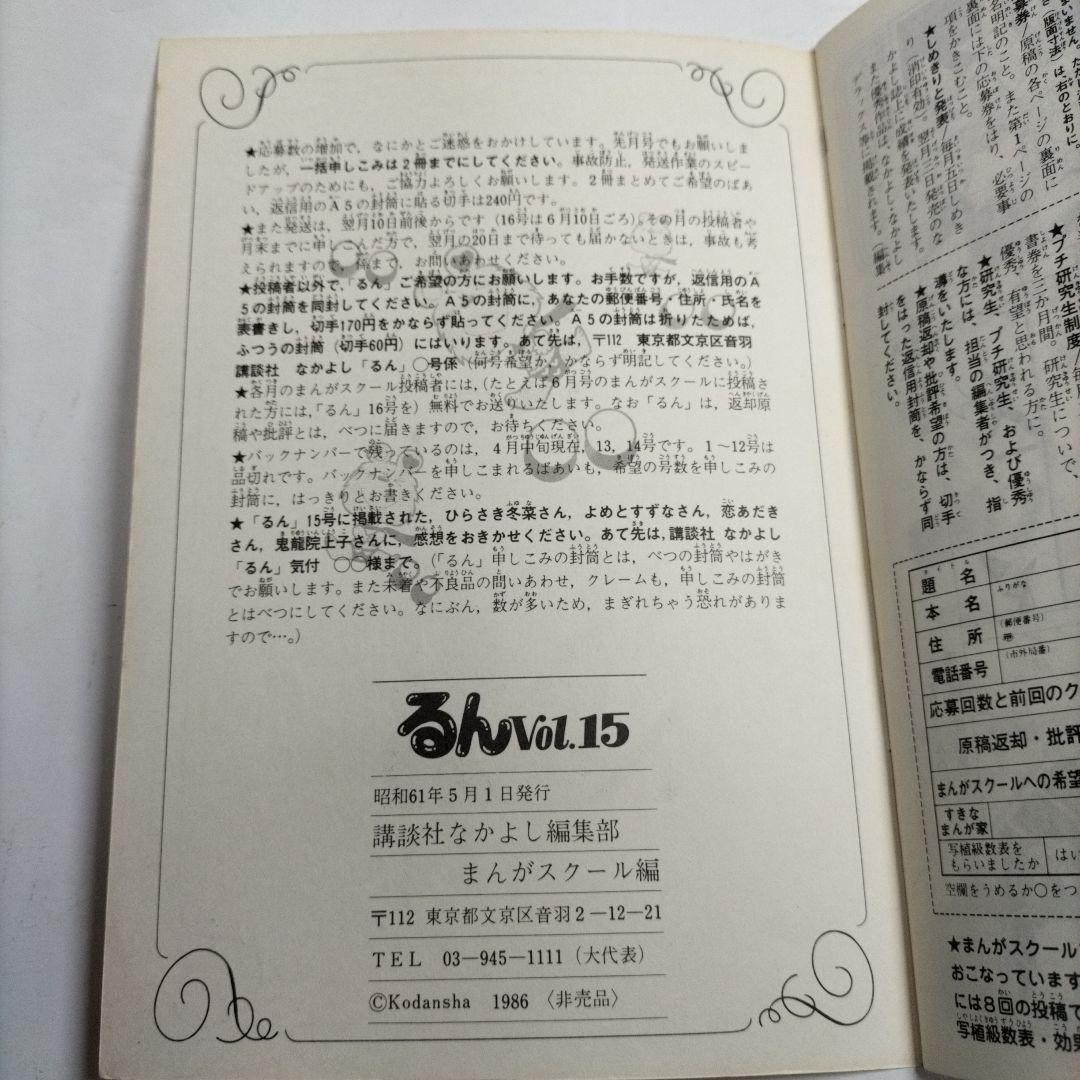 ★応募数の増加で，なにかとご迷惑をおかけしています。先月号でもお願いしま
したが，一括申しこみは２冊までにしてください。事故防止，発送作業のスピー
ドアップのためにも，ご協力よろしくお願いします。２冊まとめてご希望のばあ
い，返信用のＡ５の封筒に貼る切手は240円です。
★また発送は，翌月10日前後からです（16号は６月10日ごろ）。その月の投稿者や
月末までに申しこんだ方で，翌月の20日まで待っても届かないときは，事故も考
えられますので，係まで，お問いあわせください。
★投稿者以外で，「るん」ご希望の方にお願いします。お手数ですが，返信用のＡ
５の封筒を同封してください。Ａ５の封筒に，あなたの郵便番号・住所・氏名を
表書きし，切手170円をかならず貼ってください。Ａ５の封筒は折りたためば，
ふつうの封筒（切手60円）にはいります。あて先は，〒112 東京都文京区音羽
講談社 なかよし「るん」 ○号係（何号希望か，かならず明記してください。）
★各月のまんがスクール投稿者には，（たとえば６月号のまんがスクールに投稿さ
れた方には，「るん」16号を）無料でお送りいたします。なお「るん」は，返却原
稿や批評とは，べつに届きますので，お待ちください。
★バックナンバーで残っているのは，４月中旬現在，13，14号です。１～12号は
品切れです。バックナンバーを申しこまれるばあいも，希望の号数を申しこみの
封筒に，はっきりとお書きください。
★「るん」15号に掲載された，ひらさき冬菜さん，よめとずすなさん，恋あだき
さん，鬼龍院上子さんに，感想をおきかせください。あて先は，講談社 なかよし
「るん」気付 ○○様まで。（「るん」申しこみの封筒とは，べつの封筒やはがき
でお願いします。また未着や不良品の問いあわせ，クレームも，申しこみの封筒
とはべつにしてください。なにぶん，数が多いため，まぎれちゃう恐れがありま
すので…。）
るんVol.15
昭和61年５月１日発行
講談社なかよし編集部
まんがスクール編
〒112 東京都文京区音羽２－12－21
ＴＥＬ 03－945－1111（大代表）
©Kodansha 1986 〈非売品〉
（版面寸法）は，右のとおりに。
募券／原稿の各ページの裏面に
名明記のこと。また第１ページの
裏面には下の応募券をはり，必要事
項をかきこむこと。
★しめきりと発表／毎月五日しめき
り（消印有効）。翌月三日発売のな
かよし誌上に成績を発表いたします。
また優秀作品は，なかよし・なかよし
デラックス等に掲載されます。（編集
★プチ研究生制度／
書券を三か月間。研究生について、
優秀、有望と思われる方に。
★研究生、プチ研究生、および優秀
な方には、担当の編集者がつき、指
導をいたします。
★原稿返却や批評希望の方は、切手
をはった返信用封筒を、かならず同
封してください。
題名
タイトル
本名
ふりがな
住所
（郵便番号）
電話番号
（市外局番）
応募回数と前回のク
原稿返却・批評
まんがスクールへの希望
すきな
まんが家
写植級数表を
もらいましたか
はい
空欄をうめるか○をつ
★まんがスクール
おこなっています
には8回の投稿で
写植級数表・効果